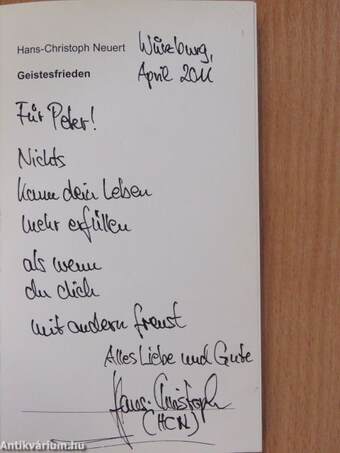 Hans-Christoph Neuert
Würzburg,
Geistesfrieden
April 2011
Für Peter!
Nichts
kann dein Leben
mehr erfüllen
als wenn
du dich
mit andern freust
Alles Liebe und Gute
Hans-Christoph
(HCN)
Antikvárium.hu